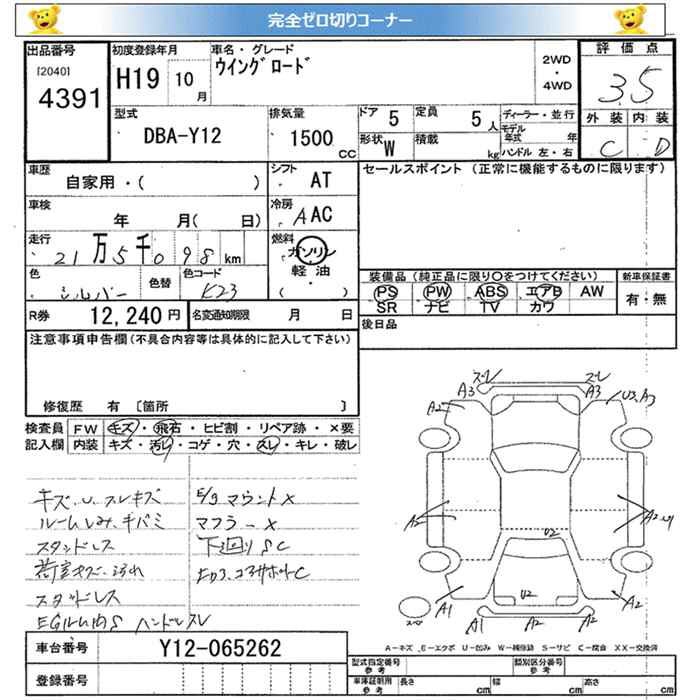 完全ゼロ切りコーナー
出品番号
[2040]
4391
初度登録年月
H19 10月
車名・グレード
ウイングロード
2WD
・
4WD
評価点
3.5
外装 内装
C D
型式
DBA-Y12
排気量
1500 cc
ドア 5
定員 5人
形状 W
積載 kg
ディーラー・並行
モデル年式 年
ハンドル 左・右
車歴
自家用・( )
シフト
AT
セールスポイント (正常に機能するものに限ります)
車検
年 月( 日)
冷房
AAC
走行
21万5千098km
燃料
ガソリン
軽・油
( )
色
シルバー
色替
色コード
K23
装備品 (純正品に限り○をつけてください)
新車保証書
PS PW ABS エアB AW
SR ナビ TV カワ
有・無
R券 12,240円
名変通知期限 月 日
後日品
注意事項申告欄(不具合内容等は具体的に記入して下さい)
修復歴 有 [箇所 ]
検査員記入欄
FW キズ・飛石・ヒビ割・リペア跡・×要
内装 キズ・汚レ・コゲ・穴・スレ・キレ・破レ
キズ、U、スレキズ
E/gマウント×
ルームしみ、キバミ
マフラー×
スタッドレス
下廻りSC
荷室キズ・汚れ
スタッドレス
EGルーム内S ハンドルスレ
スレ スレ
A3 A3
A2 U3、A3
U2
U2
A1 A1 A2 A2
車台番号 Y12-065262
登録番号
A-キズ E-エクボ U-凹み W-補修跡 S-サビ C-腐食 XX-交換済
型式指定番号 参考
類別区分番号 参考
車庫証明用 参考
長さ cm
幅 cm
高さ cm